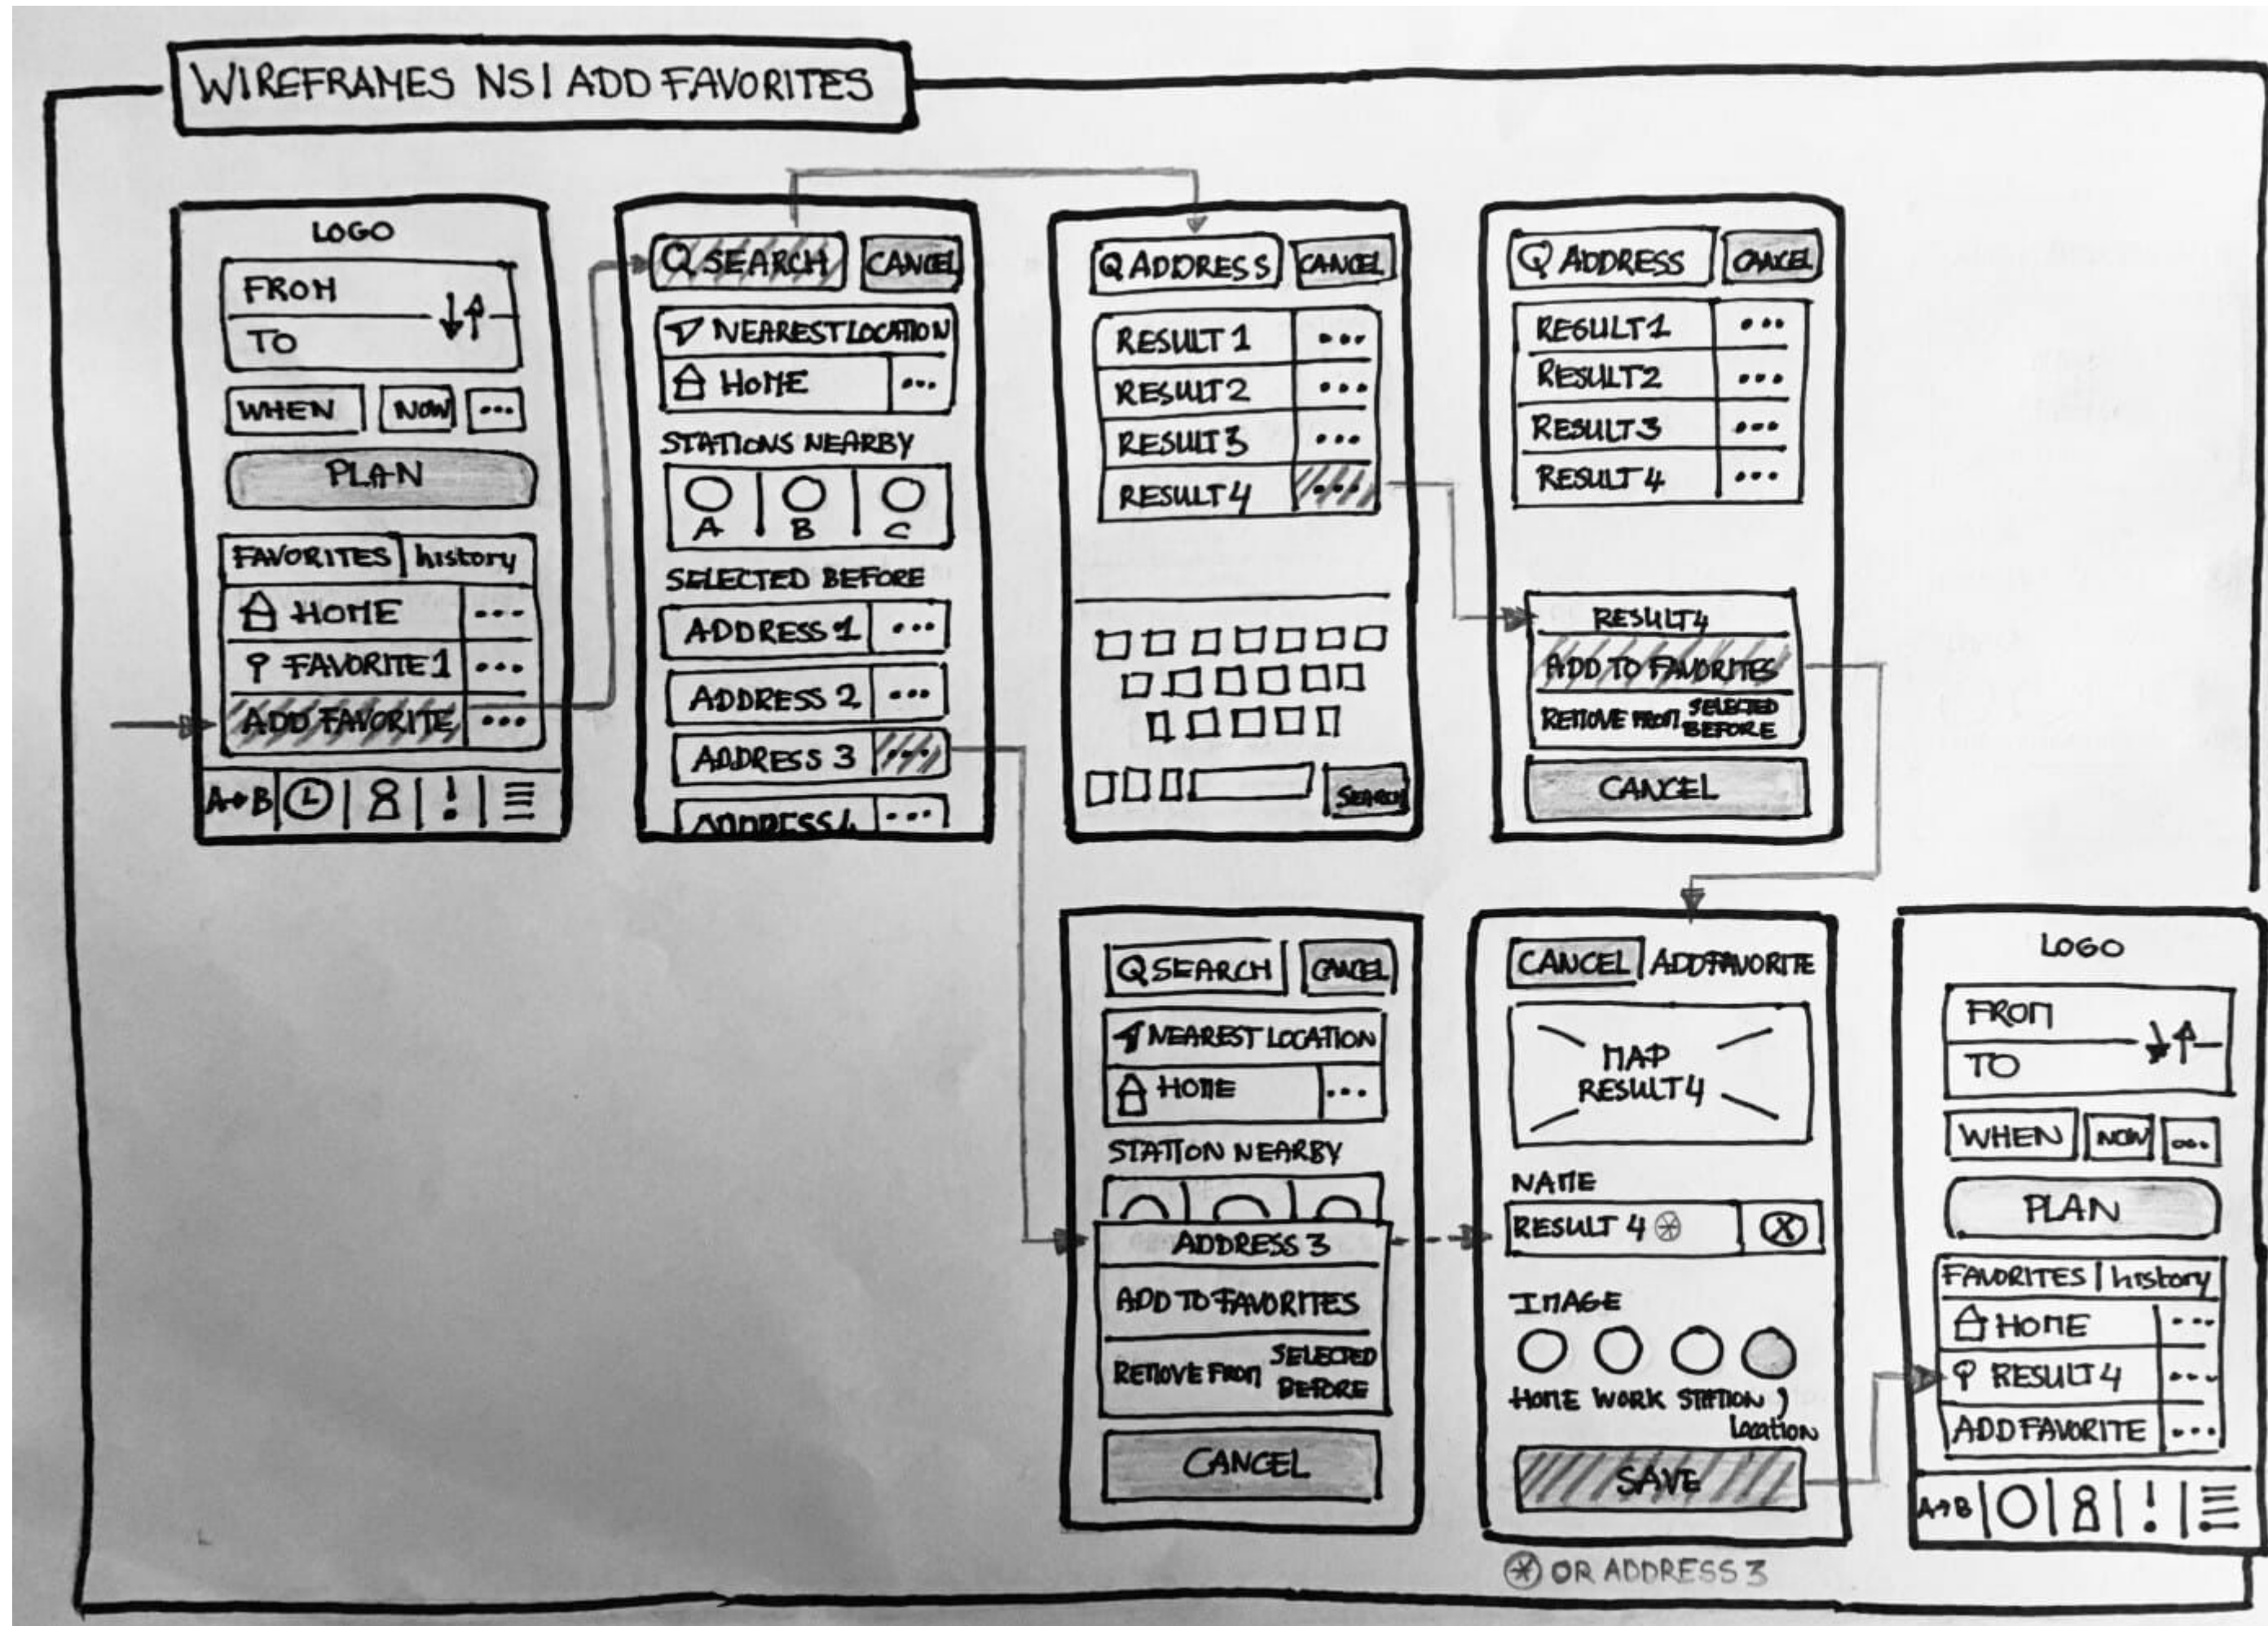 WIREFRAMES NS | ADD FAVORITES
LOGO
FROM
TO
WHEN NOW ...
PLAN
FAVORITES | history
HOME ...
FAVORITE 1 ...
ADD FAVORITE ...
A→B !
SEARCH CANCEL
NEAREST LOCATION
HOME ...
STATIONS NEARBY
A B C
SELECTED BEFORE
ADDRESS 1 ...
ADDRESS 2 ...
ADDRESS 3 ...
ADDRESS 4 ...
ADDRESS CANCEL
RESULT 1 ...
RESULT 2 ...
RESULT 3 ...
RESULT 4 ...
SEARCH
ADDRESS CANCEL
RESULT 1 ...
RESULT 2 ...
RESULT 3 ...
RESULT 4 ...
RESULT 4
ADD TO FAVORITES
REMOVE FROM SELECTED
BEFORE
CANCEL
SEARCH CANCEL
NEAREST LOCATION
HOME ...
STATION NEARBY
ADDRESS 3
ADD TO FAVORITES
REMOVE FROM SELECTED
BEFORE
CANCEL
CANCEL ADD FAVORITE
MAP
RESULT 4
NAME
RESULT 4 * X
IMAGE
HOME WORK STATION
location
SAVE
* OR ADDRESS 3
LOGO
FROM
TO
WHEN NOW ...
PLAN
FAVORITES | history
HOME ...
RESULT 4 ...
ADD FAVORITE ...
A→B !